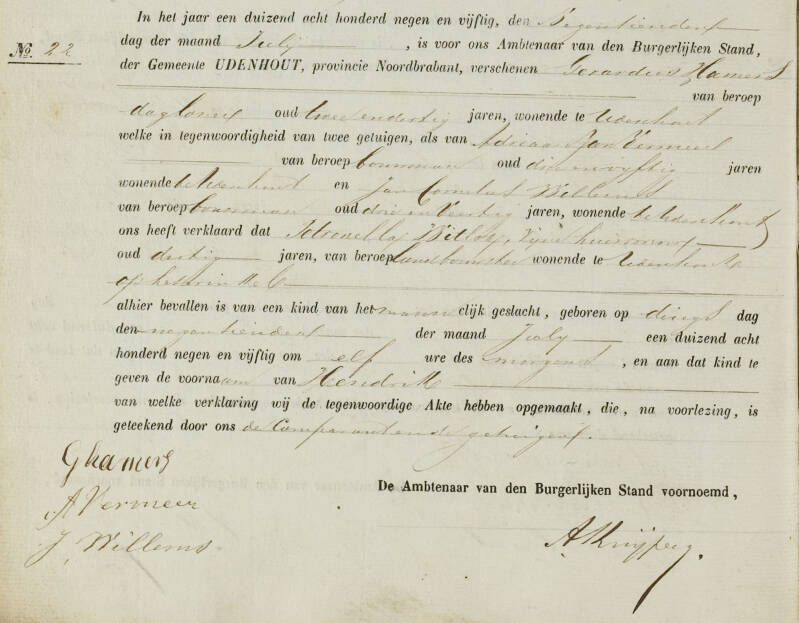 In het jaar een duizend acht honderd negen en vijftig, den Negentienden
No. 22
dag der maand July, is voor ons Ambtenaar van den Burgerlijken Stand,
der Gemeente UDENHOUT, provincie Noordbrabant, verschenen Gerardus Hamers
van beroep
dagloner oud twee en dertig jaren, wonende te Udenhout
welke in tegenwoordigheid van twee getuigen, als van Adriaan Vermeer
van beroep bouwman oud drie en vijftig jaren
wonende te Udenhout en Jan Cornelis Willems
van beroep bouwman oud drie en Veertig jaren, wonende te Udenhout
ons heeft verklaard dat Petronella zijne huisvrouw
oud dertig jaren, van beroep wonende te Udenhout
op het winkel
alhier bevallen is van een kind van het mannelijk geslacht, geboren op dingsdag
den negentienden der maand July een duizend acht
honderd negen en vijftig om elf ure des morgens, en aan dat kind te
geven de voornaam van Hendrik
van welke verklaring wij de tegenwoordige Akte hebben opgemaakt, die, na voorlezing, is
geteekend door ons de Comparant en de getuigen.
G Hamers
A Vermeer
J. Willems
De Ambtenaar van den Burgerlijken Stand voornoemd,